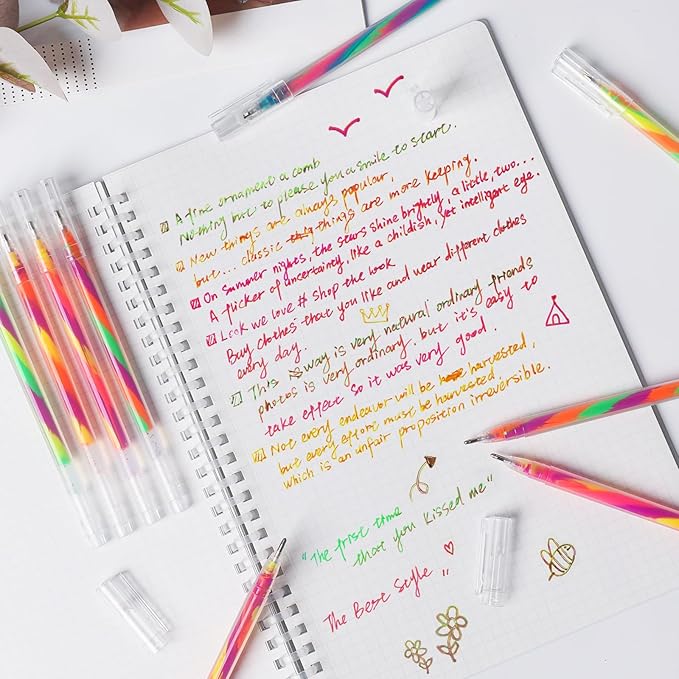 A fine ornament a comb
Nothing but to please you a smile to start.
New things are always popular,
but... classic things are more keeping.
On summer nights, the stars shine brightly, a little, two...
A flicker of uncertainty, like a childish, yet intelligent eye.
Look we love # shop the look
Buy clothes that you like and wear different clothes
every day.
This way is very natural ordinary friends
photos is very ordinary, but it's easy to
take effect so it was very good.
Not every endeavor will be harvested,
but every effort must be harvested,
which is an unfair proposition irreversible.
"The frist time
that you kissed me"
The Best Style